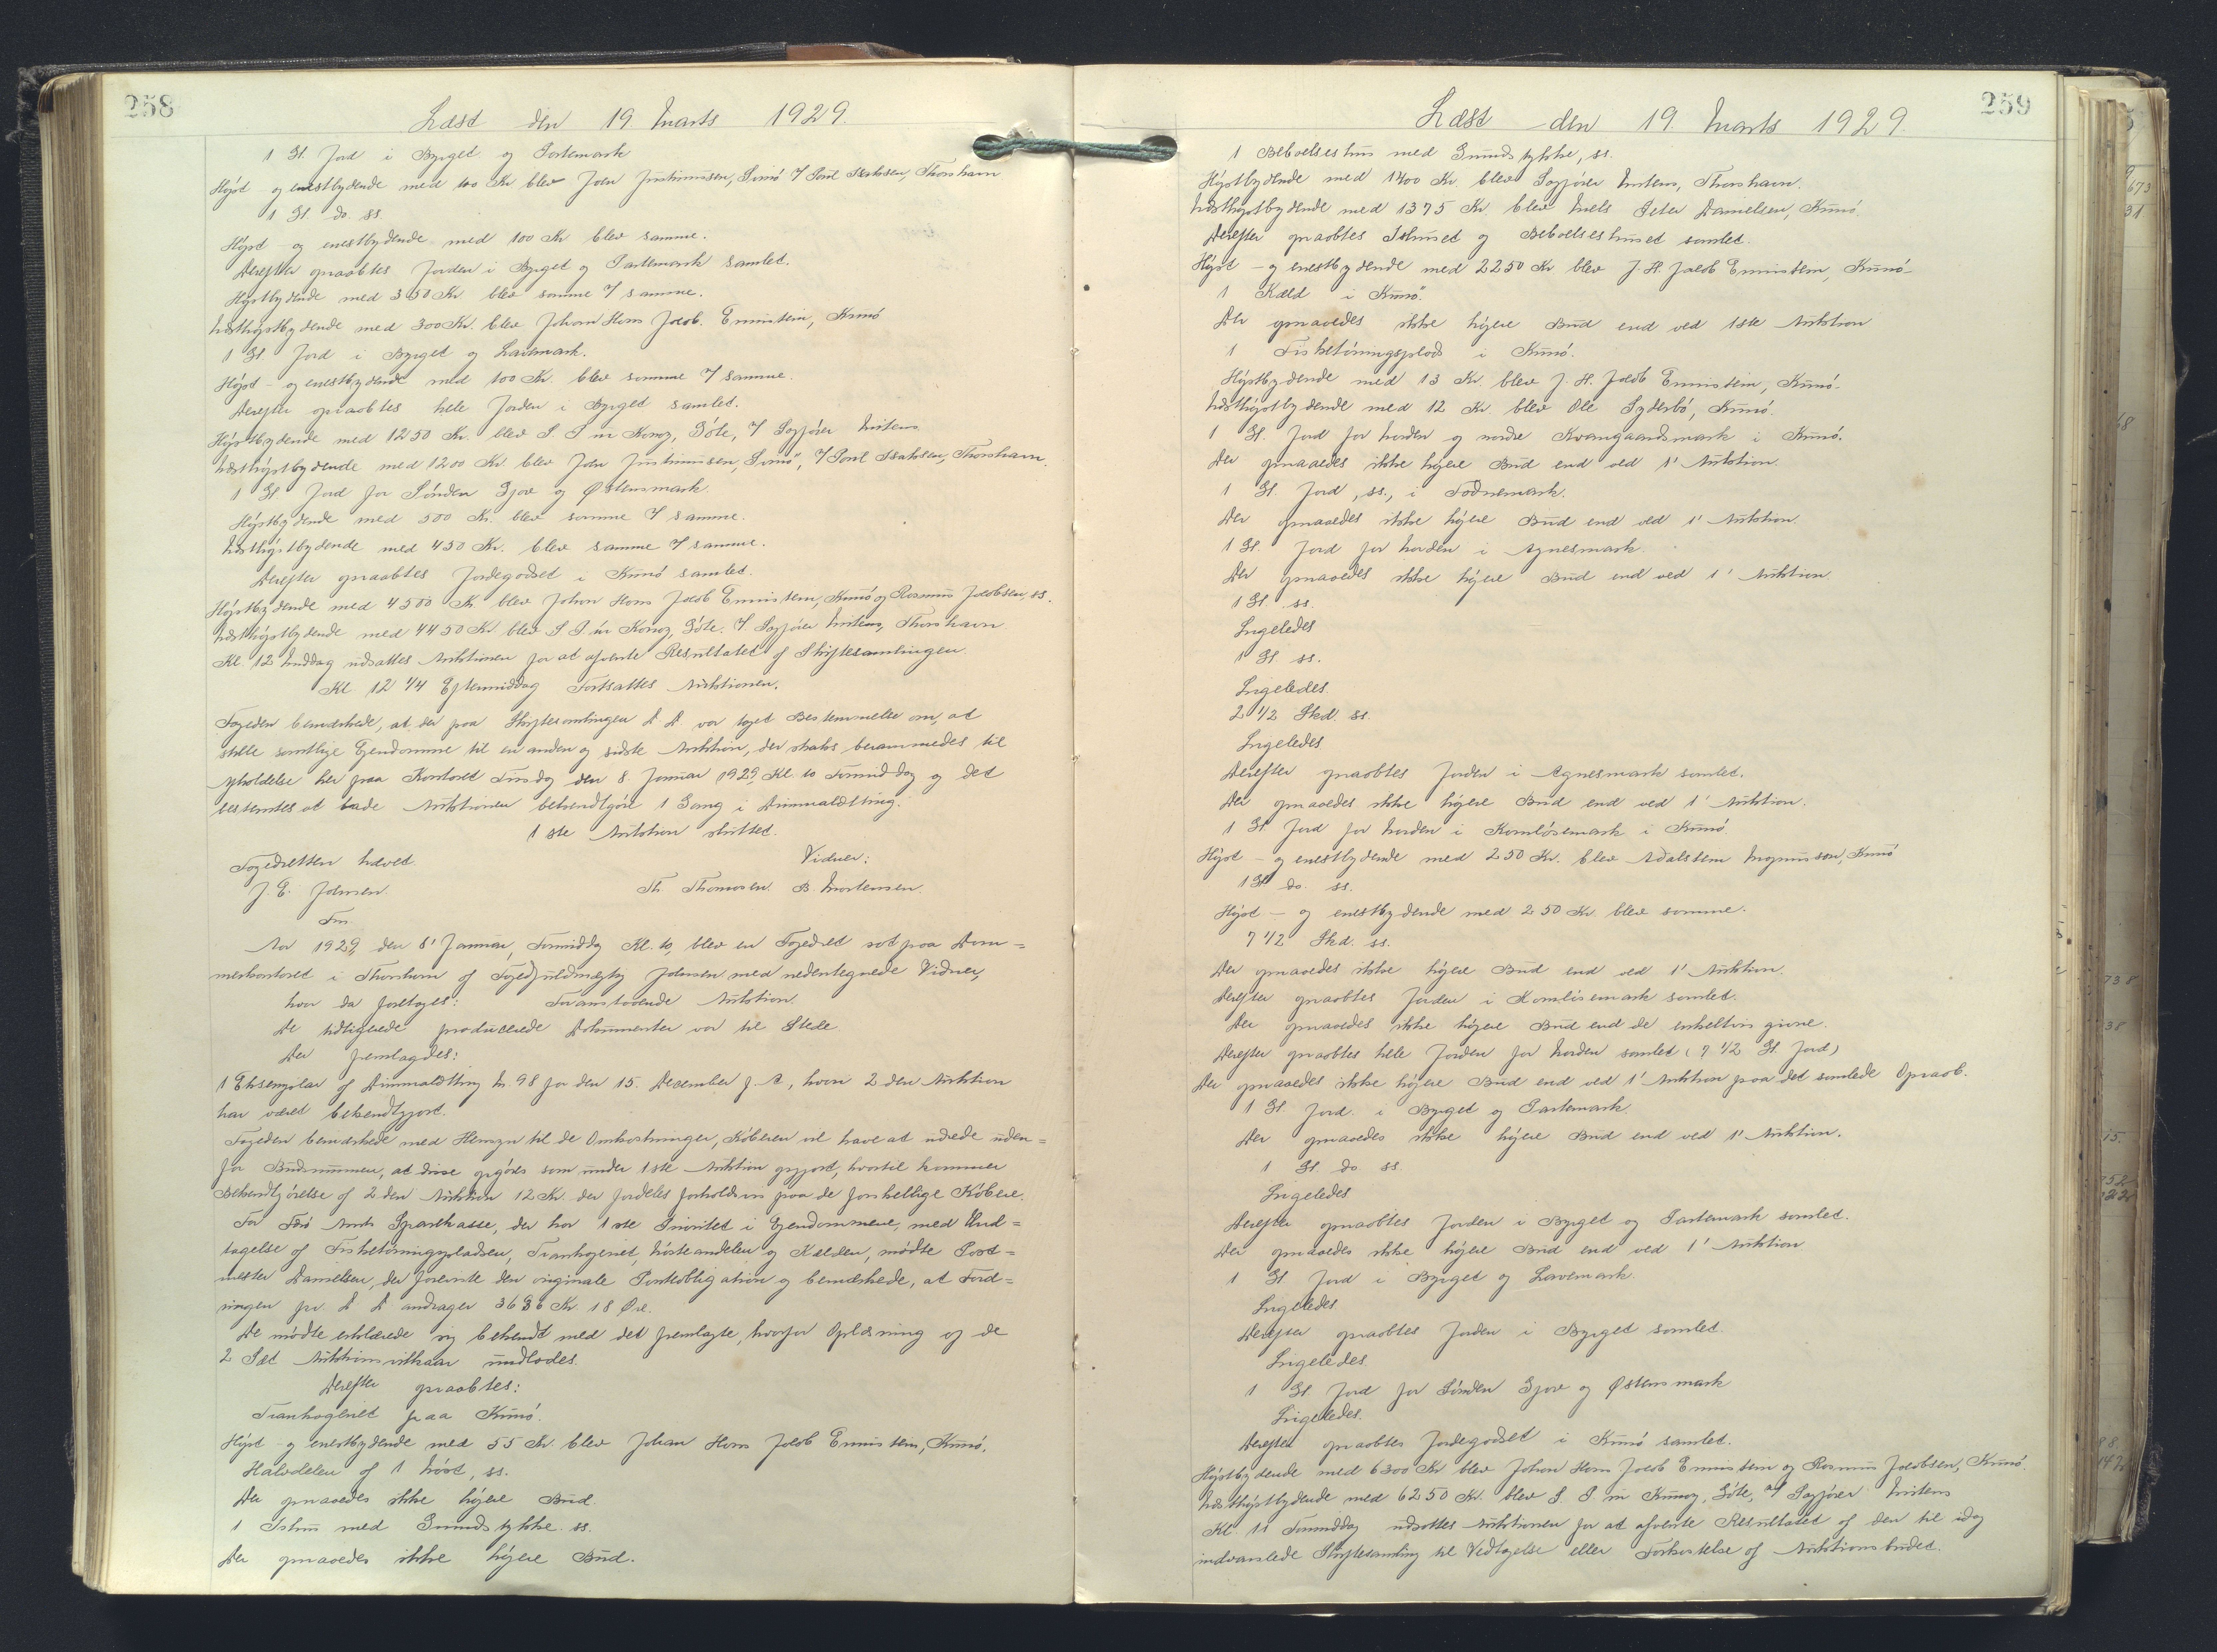 258
Læst den 19. Marts 1929.
1 Gl. Jord i Byrget og Partemark
Højst og enestbydende med 100 Kr blev Joen Justinussen, Svinø v/ Poul Isaksen, Thorshavn
1 Gl. do. ss.
Højst- og enestbydende med 100 Kr blev samme.
Derefter opraabtes Jorden i Byrget og Partemark samlet.
Højstbydende med 350 Kr. blev samme v/ samme.
Næsthøjstbydende med 300 Kr. blev Johan Hans Jacob Ennistein, Kunø
1 Gl. Jord i Byrget og Lavemark.
Højst- og enestbydende med 100 Kr. blev samme v/ samme.
Derefter opraabtes hele Jorden i Byrget samlet.
Højstbydende med 1250 Kr. blev S. P. úr Konoy, Gøte, v/ Sagfører Mitens
Næsthøjstbydende med 1200 Kr. blev Joen Justinussen, Svinø, v/ Poul Isaksen, Thorshavn.
1 Gl. Jord for Sønden Gjov og Østensmark.
Højstbydende med 500 Kr. blev samme v/ samme.
Næsthøjstbydende med 450 Kr. blev samme v/ samme.
Derefter opraabtes Jordegodset i Kunø samlet.
Højstbydende med 4500 Kr. blev Johan Hans Jacob Ennistein, Kunø og Rasmus Jacobsen, ss.
Næsthøjstbydende med 4450 Kr. blev S. P. úr Konoy, Gøte v/ Sagfører Mitens, Thorshavn
Kl. 12 Middag udsattes Auktionen for at afvente Resultatet af Skiftesamlingen.
Kl. 12 1/4 Eftermiddag Fortsattes Auktionen.
Fogeden bemærkede, at der paa Skiftesamlingen D. D. var taget Bestemmelse om, at
stille samtlige Ejendomme til en anden og sidste Auktion, der straks berammedes til
Afholdelse her paa Kontoret Tirsdag den 8. Januar 1929, Kl. 10 Formiddag og det
bestemtes at lade Auktionen bekendtgøre 1 Gang i Dimmalætting.
1ste Auktion sluttet.
Fogedretten hævet.
Vidner:
J. E. Johnsen
Th. Thomasen. B. Mortensen.
Fm.
Aar 1929, den 8' Januar, Formiddag Kl. 10, blev en Fogedret sat paa Dom=
merkontoret i Thorshavn af Fogedfuldmægtig Johnsen med nedentegnede Vidner,
hvor da foretoges: Foranstaaende Auktion.
De tidligere producerede Dokumenter var til Stede.
Der fremlagdes:
1 Eksemplar af Dimmalætting Nr. 98 for den 15. December f. A., hvori 2den Auktion
har været bekendtgjort.
Fogeden bemærkede med Hensyn til de Omkostninger, Køberen vil have at udrede uden=
for Budsummen, at disse opgøres som under 1ste Auktion opgjort, hvortil kommer
Bekendtgørelse af 2den Auktion 12 Kr. der fordeles forholdsvis paa de forskellige Købere.
For Færø Amts Sparekasse, der har 1ste Prioritet i Ejendommene, med Und=
tagelse af Fisketørringspladsen, Trankogeriet, Nøsteandelen og Kælden, mødte Post=
mester Danielsen, der foreviste den originale Panteobligation og bemærkede, at Ford=
ringen pr. D. D. andrager 3686 Kr. 18 Øre.
De mødte erklærede sig bekendt med det fremlagte, hvorfor Oplæsning af de
2 Sæt Auktionsvilkaar undlodes.
Derefter opraabtes:
Trankogeriet paa Kunø.
Højst- og enestbydende med 55 Kr. blev Johan Hans Jacob Ennistein, Kunø.
Halvdelen af 1 Nøst, ss.
Der opnaaedes ikke højere Bud.
1 Ishus med Grundstykke ss.
Der opnaaedes ikke højere Bud.
259
Læst den 19. Marts 1929.
1 Beboelseshus med Grundstykke, ss.
Højstbydende med 1400 Kr. blev Sagfører Mitens, Thorshavn.
Næsthøjstbydende med 1375 Kr. blev Niels Peter Danielsen, Kunø.
Derefter opraabtes Ishuset og Beboelseshuset samlet.
Højst- og enestbydende med 2250 Kr blev J. H. Jacob Ennistein, Kunø.
1 Kæld i Kunø.
Der opnaaedes ikke højere Bud end ved 1ste Auktion
1 Fisketørringsplads i Kunø.
Højstbydende med 13 Kr. blev J. H. Jacob Ennistein, Kunø.
Næsthøjstbydende med 12 Kr. blev Ole Syderbø, Kunø.
1 Gl. Jord for Norden og nordre Kvangaardsmark i Kunø.
Der opnaaedes ikke højere Bud end ved 1' Auktion.
1 Gl. Jord, ss., i Todnemark.
Der opnaaedes ikke højere Bud end ved 1' Auktion.
1 Gl. Jord for Norden i Agnesmark.
Der opnaaedes ikke højere Bud end ved 1' Auktion.
1 Gl. ss.
Ligeledes
1 Gl. ss.
Ligeledes.
2 1/2 Skd. ss.
Ligeledes
Derefter opraabtes Jorden i Agnesmark samlet.
Der opnaaedes ikke højere Bud end ved 1' Auktion.
1 Gl. Jord for Norden i Kornløsemark i Kunø.
Højst- og enestbydende med 250 Kr. blev Adalstein Magnussen, Kunø
1 Gl. do. ss.
Højst- og enestbydende med 250 Kr. blev samme.
7 1/2 Skd. ss.
Der opnaaedes ikke højere Bud end ved 1' Auktion.
Derefter opraabtes Jorden i Kornløsemark samlet.
Der opnaaedes ikke højere Bud end de enkeltvis givne.
Derefter opraabtes hele Jorden for Norden samlet (7 1/2 Gl. Jord)
Der opnaaedes ikke højere Bud end ved 1' Auktion paa det samlede Opraab.
1 Gl. Jord i Byrget og Partemark.
Der opnaaedes ikke højere Bud end ved 1' Auktion.
1 Gl. do ss.
Ligeledes
Derefter opraabtes Jorden i Byrget og Partemark samlet.
Der opnaaedes ikke højere Bud end ved 1' Auktion
1 Gl. Jord i Byrget og Lavemark.
Ligeledes.
Derefter opraabtes Jorden i Byrget samlet.
Ligeledes.
1 Gl. Jord for Sønden Gjov og Østensmark
Ligeledes.
Derefter opraabtes Jordegodset i Kunø samlet.
Højstbydende med 6300 Kr blev Johan Hans Jacob Ennistein og Rasmus Jacobsen, Kunø.
Næsthøjstbydende med 6250 Kr. blev S. P. úr Kunoy, Gøte, v/ Sagfører Mitens
Kl. 11 Formiddag udsattes Auktionen for at afvente Resultatet af den til idag
indvarslede Skiftesamling til Vedtagelse eller Forkastelse af Auktionsbudet.